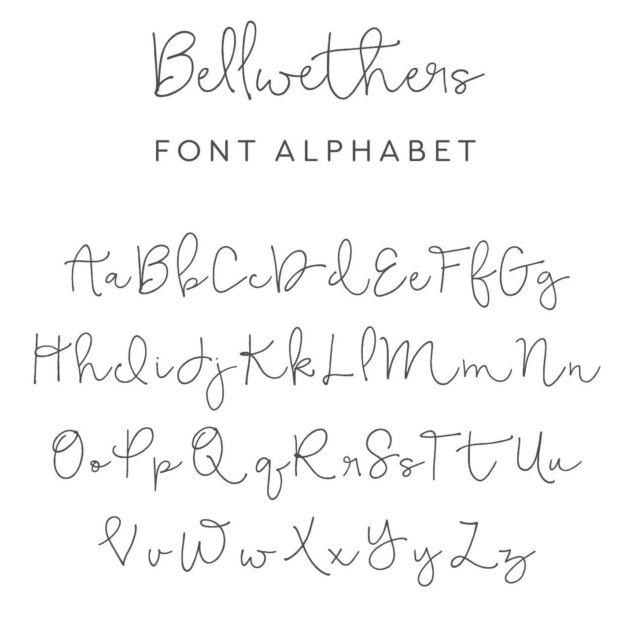 Bellwethers
FONT ALPHABET
AaBbCcDdEeFfGg
HhIiJjKkLlMmNn
OoPpQqRrSsTtUu
VvWwXxYyZz